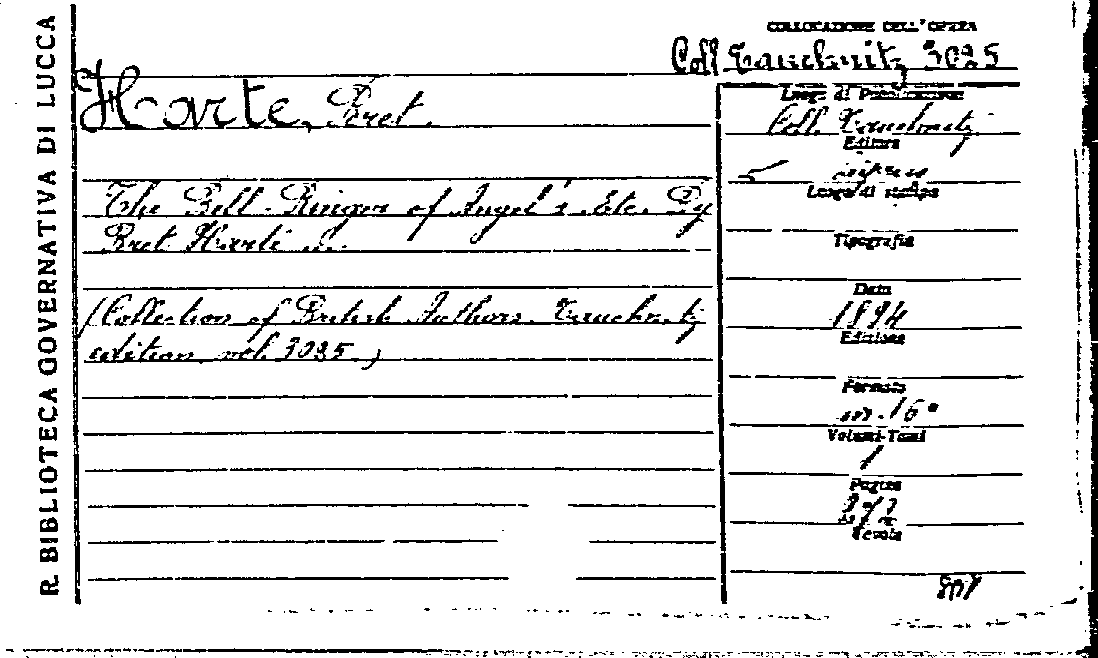 R. BIBLIOTECA GOVERNATIVA DI LUCCA
COLLOCAZIONE DELL'OPERA
Coll. Tauchnitz 3025
Harte, Bret.
The Bell-Ringer of Angel's. Etc. By
Bret Harte
(Collection of British Authors. Tauchnitz
edition vol. 3025.)
Luogo di Pubblicazione
Coll. Tauchnitz
Editore
Lipsia
Luogo di stampa
Tipografia
Data
1894
Edizione
Formato
in-16°
Volumi-Tomi
1
Pagine
Tavole